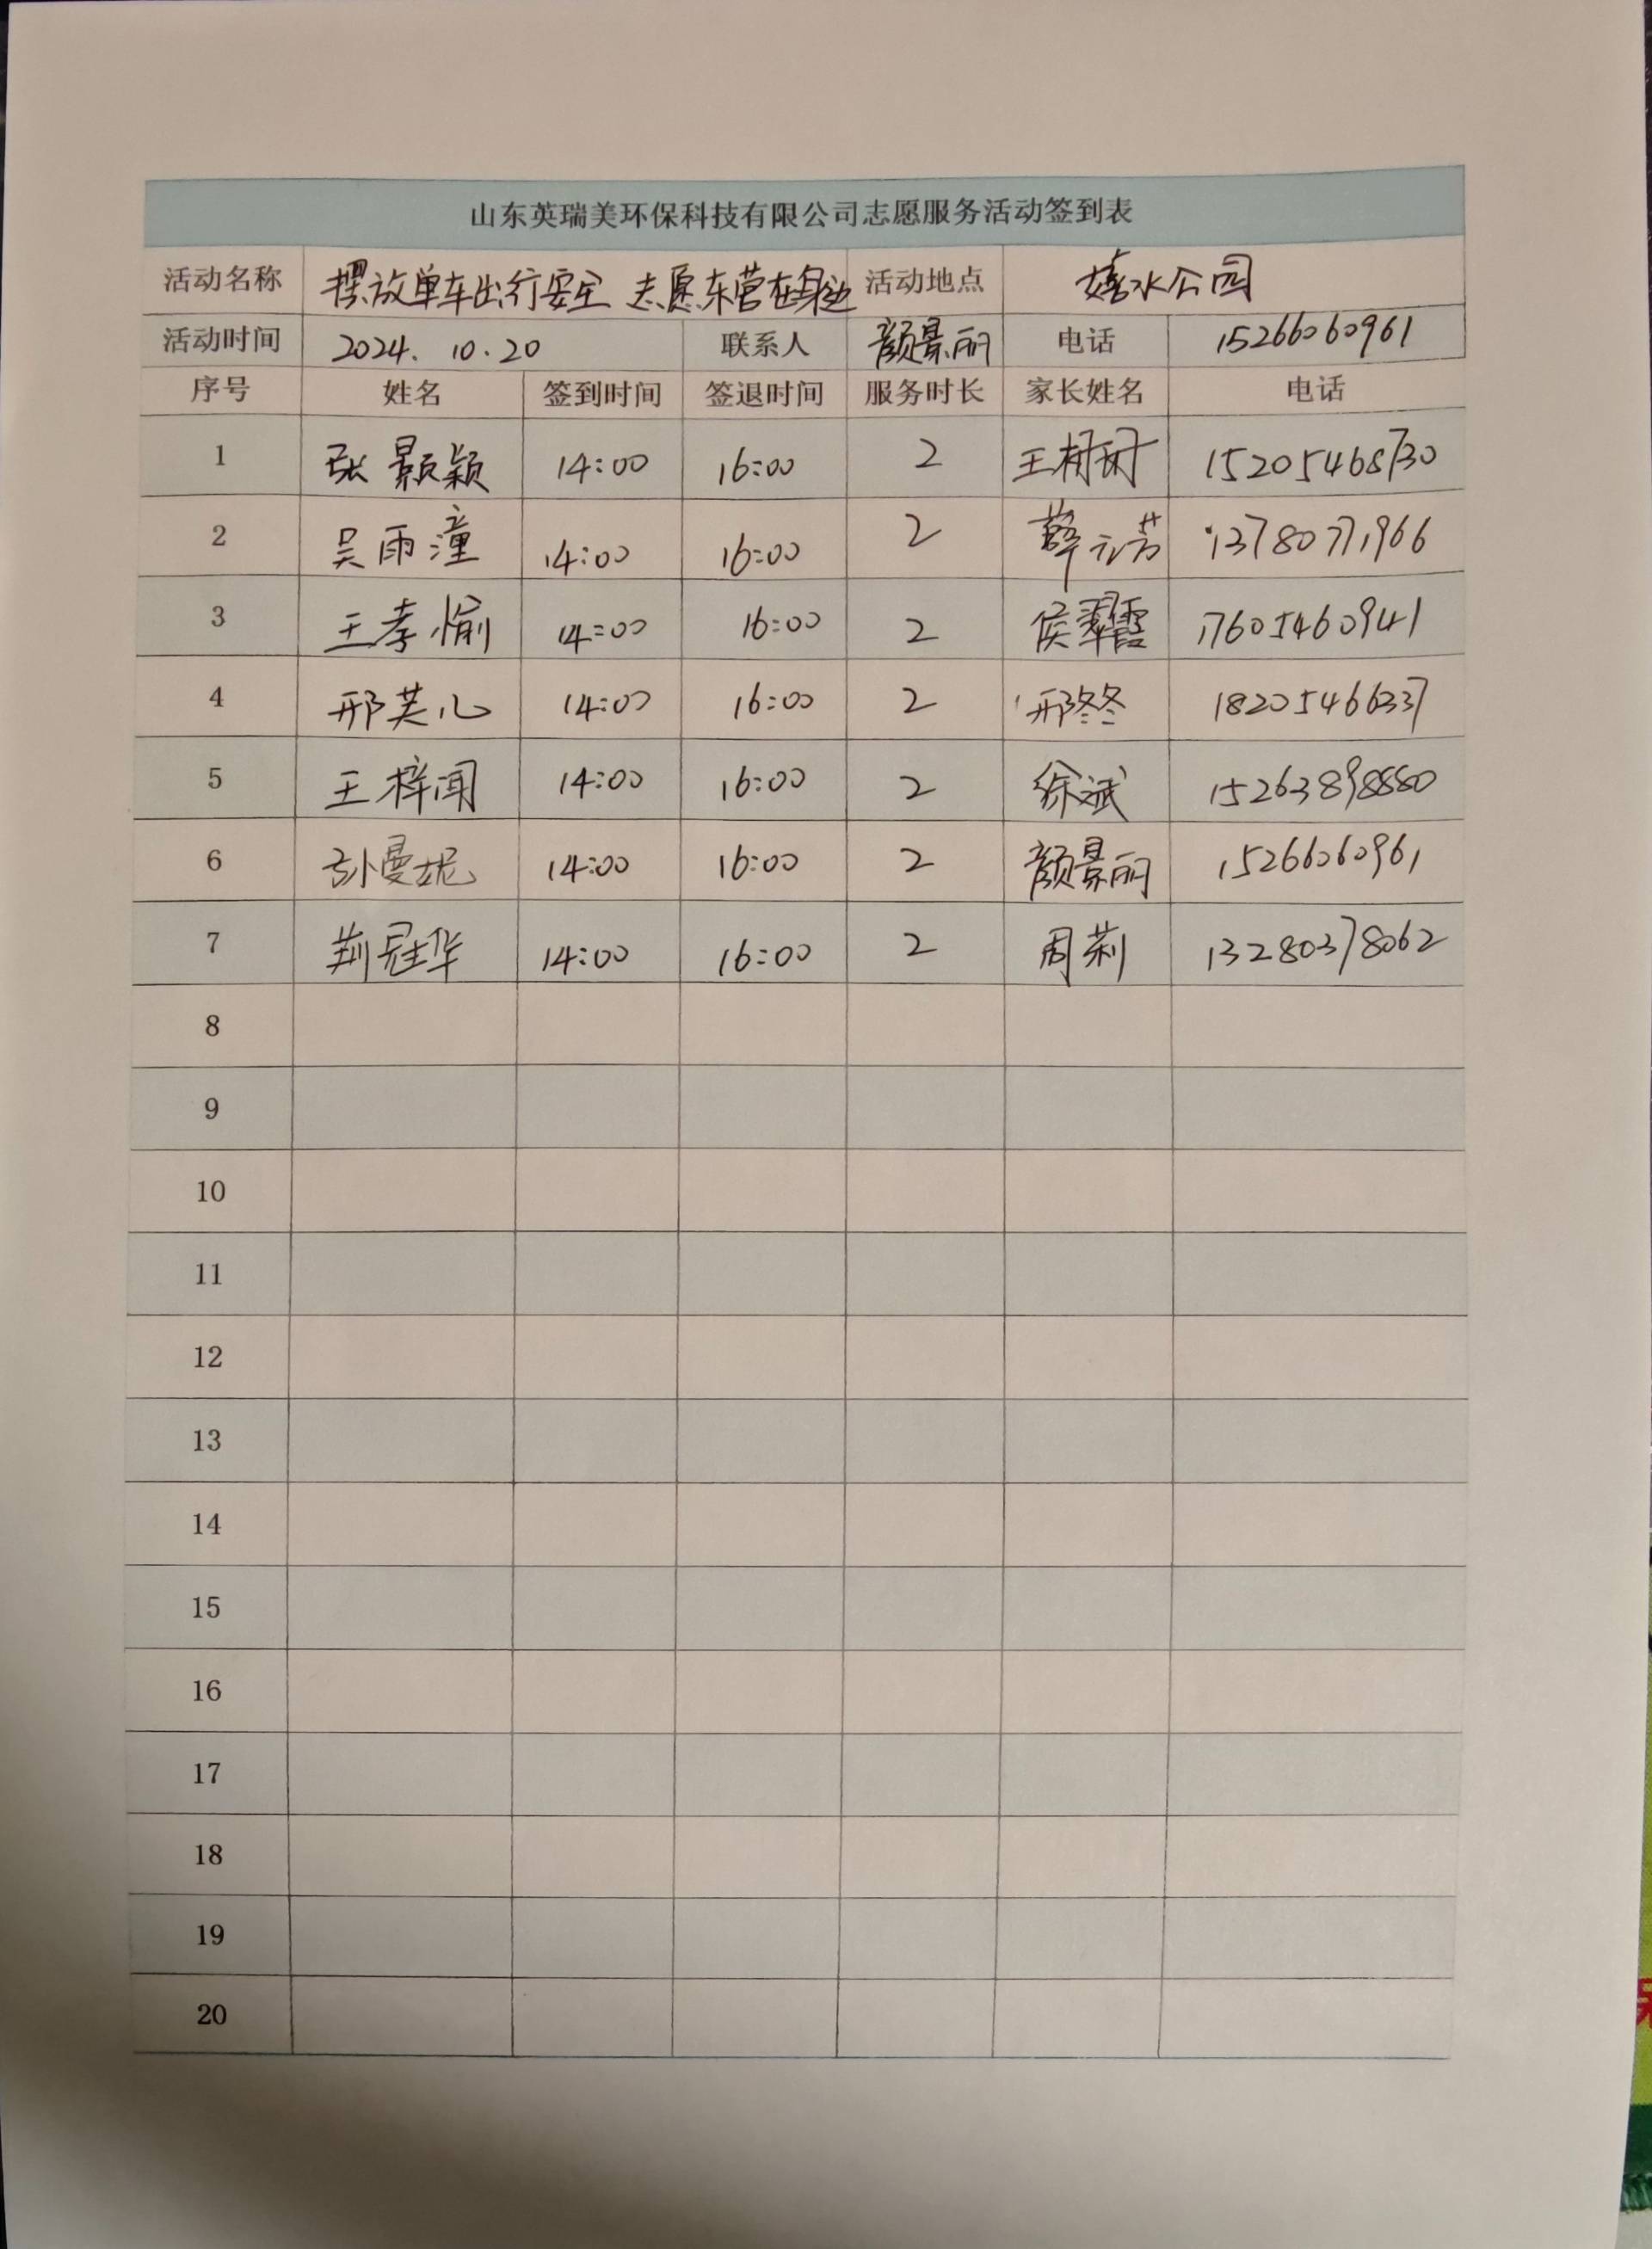 山东英瑞美环保科技有限公司志愿服务活动签到表
活动名称 摆放单车出行安全 志愿东营在身边 活动地点 嬉水公园
活动时间 2024.10.20 联系人 颜景丽 电话 15266060961
序号 姓名 签到时间 签退时间 服务时长 家长姓名 电话
1 张颢颖 14:00 16:00 2 王树树 15205468730
2 吴雨潼 14:00 16:00 2 薛元芳 13780771966
3 王孝愉 14:00 16:00 2 侯翠霞 17605460941
4 邢芙心 14:00 16:00 2 邢冬冬 18205466337
5 王梓闻 14:00 16:00 2 徐斌 15263898880
6 孙曼妮 14:00 16:00 2 颜景丽 15266060961
7 荆冠华 14:00 16:00 2 周莉 13280378062
8
9
10
11
12
13
14
15
16
17
18
19
20